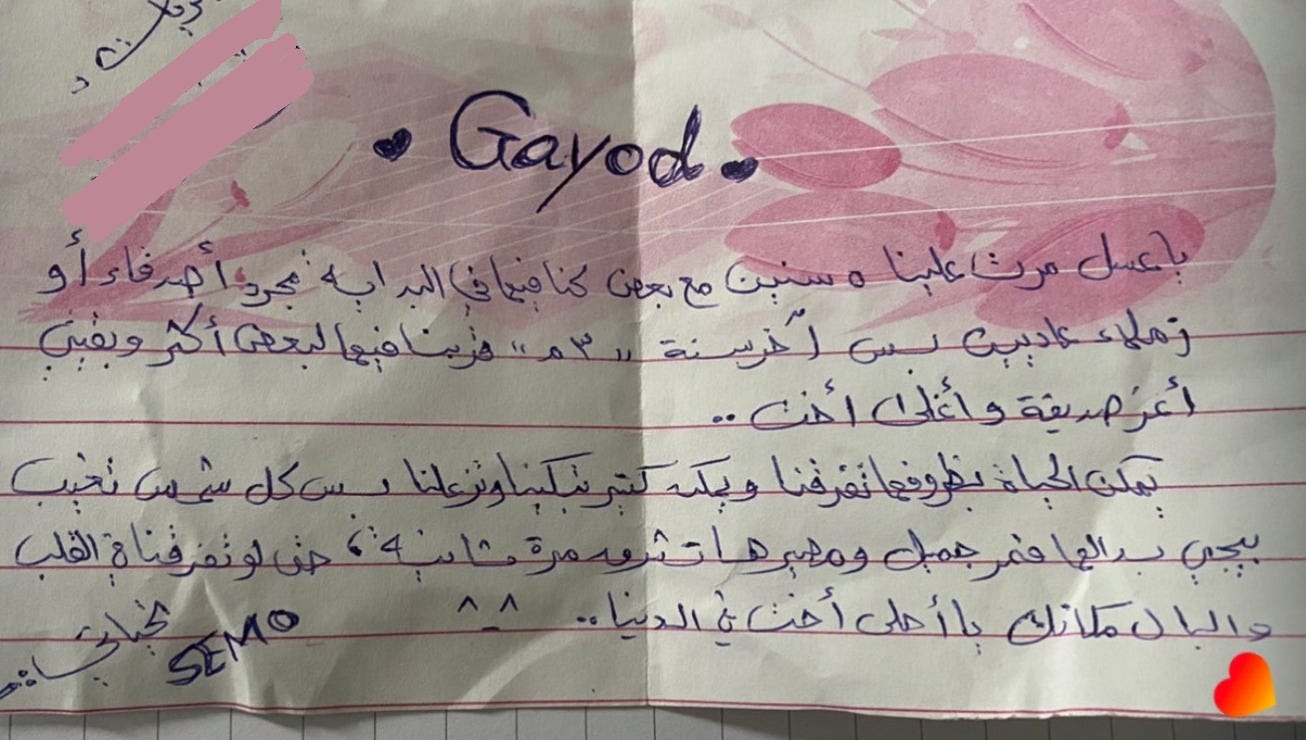 Gayod
يا عسل مرت علينا ٥ سنين مع بعض كنا فيها في البداية مجرد أصدقاء أو
زملاء عاديين بس آخر سنة "٣م" قربنا فيها لبعض أكثر وبقيتي
أعز صديقة وأغلى أخت ..
يمكن الحياة بظروفها تفرقنا ويمكن كتير تبكينا وتزعلنا بس كل شمس تغيب
بيجي بدالها قمر جميل ومصيرها تشرق مرة ثانية، حتى لو تفرقنا ف القلب
والبال مكانك يا أحلى أخت في الدنيا .. ^_^
تحياتي
SEMO